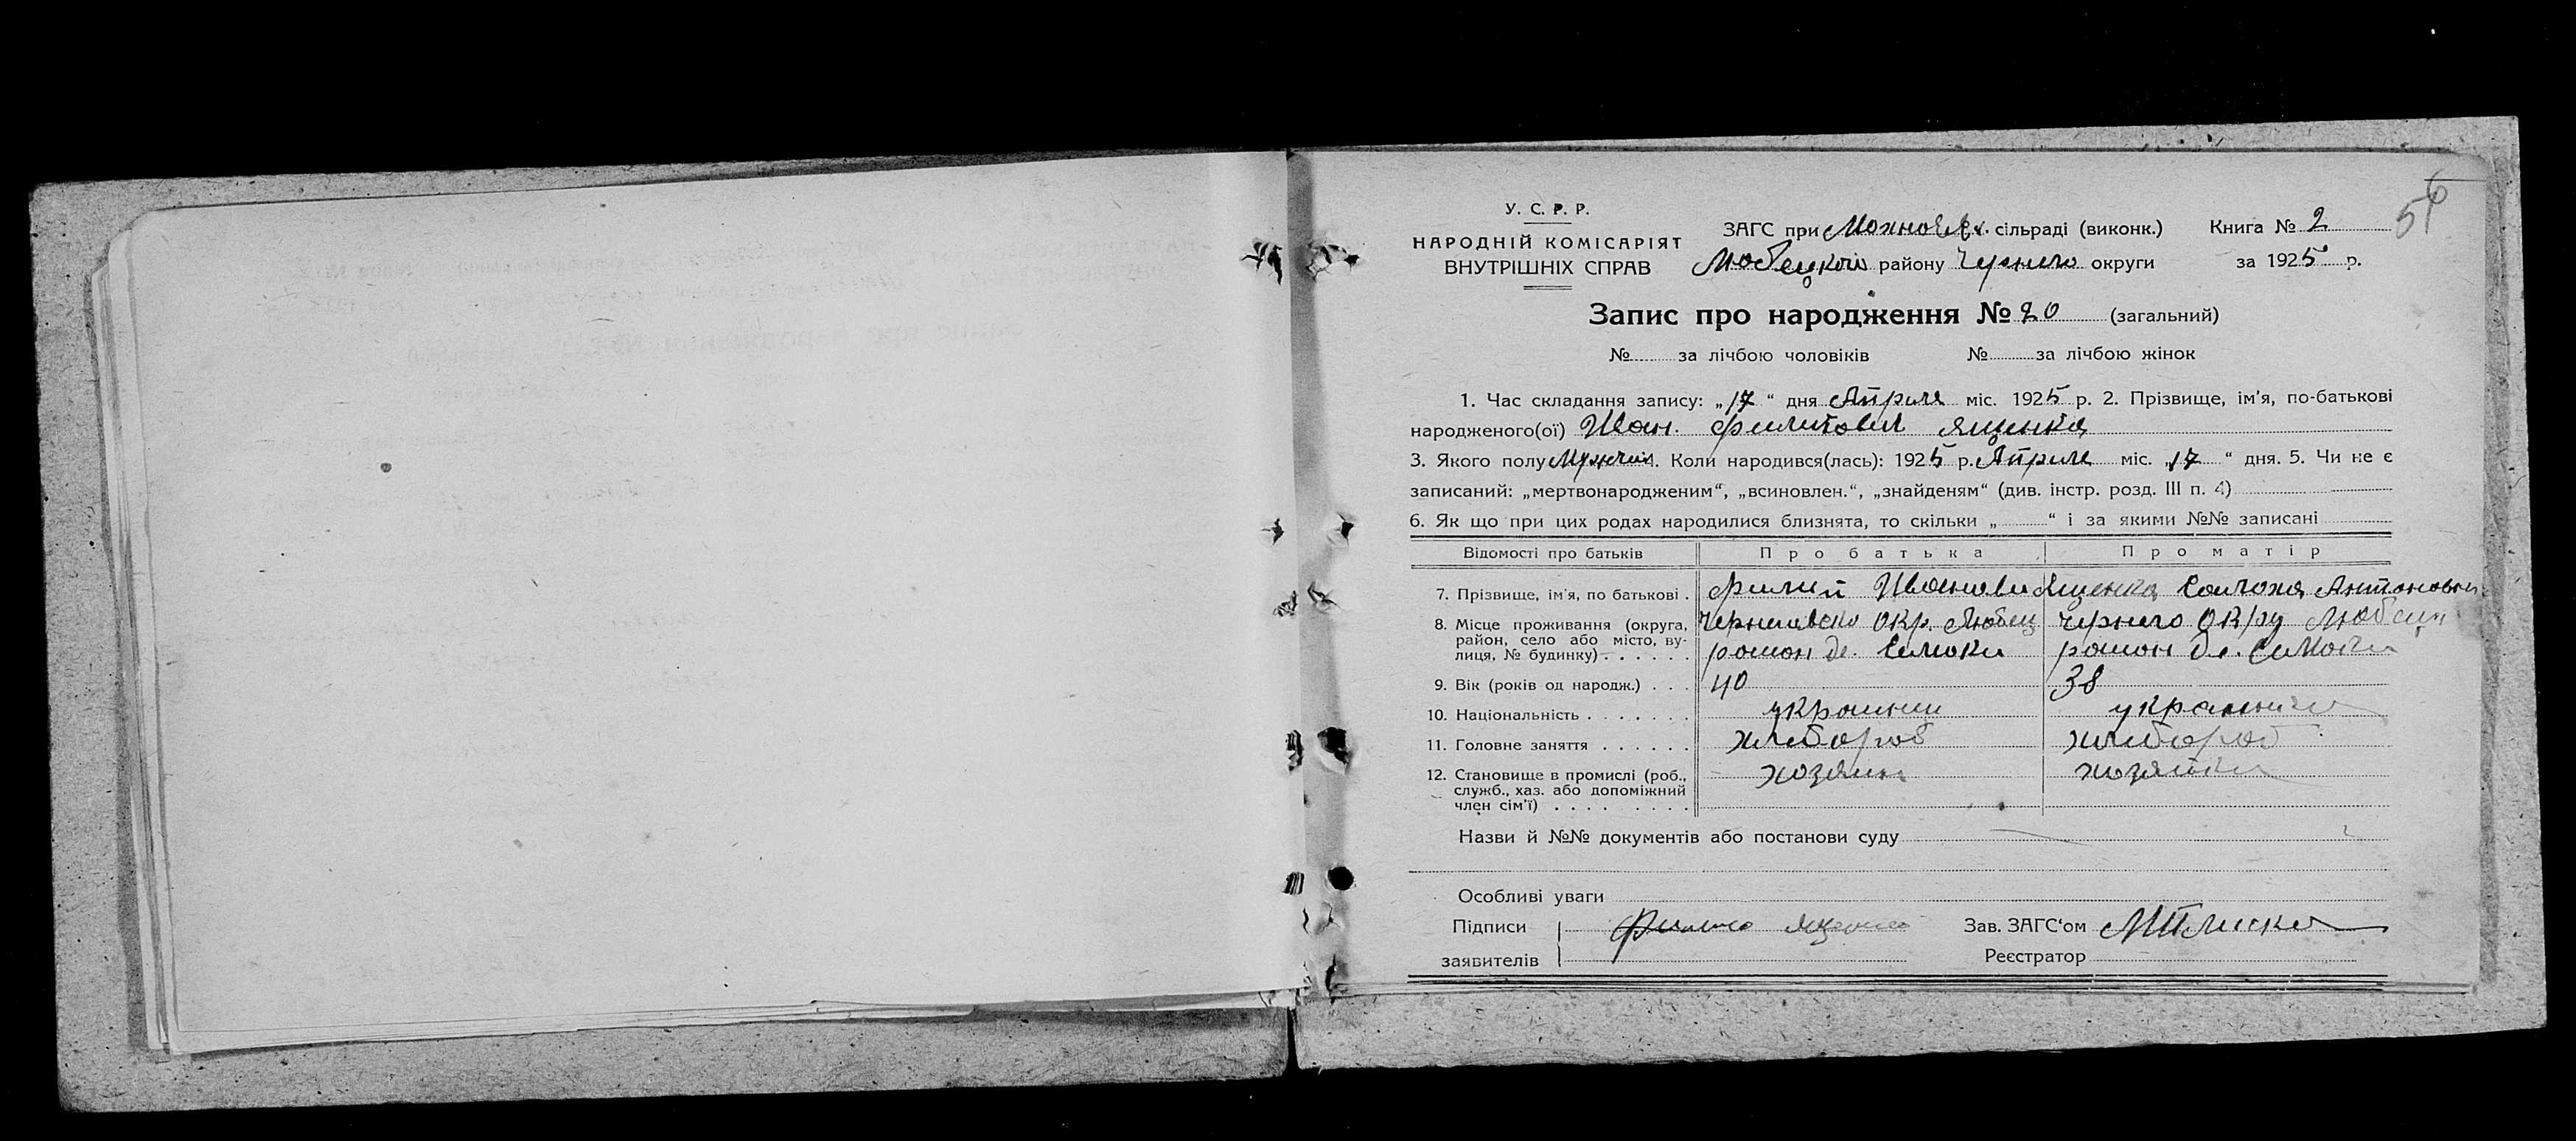 У. С. Р. Р.
НАРОДНІЙ КОМІСАРІЯТ
ВНУТРІШНІХ СПРАВ
ЗАГС при сільраді (виконк.) Книга № 2
Любецкой району Черниго округи за 1925 р.
Запис про народження № 20 (загальний)
№ за лічбою чоловіків № за лічбою жінок
1. Час складання запису: „17“ дня Апреля міс. 1925 р. 2. Прізвище, ім'я, по-батькові
народженого(ої) Иван Филипович Ященка
3. Якого полу Мужчин 4. Коли народився(лась): 1925 р. Апреля міс. „17“ дня. 5. Чи не є
записаний: „мертвонародженим“, „всиновлен.“, „знайденям“ (див. інстр. розд. III п. 4)
6. Як що при цих родах народилися близнята, то скільки „ “ і за якими №№ записані
Відомості про батьків Про батька Про матір
7. Прізвище, ім'я, по батькові . Филип Иванови Ященка Антоновна
8. Місце проживання (округа, район, село або місто, вулиця, № будинку) . . . . . . Черниговско Окр. Любец Черниго Окру Любецк
район де. район де.
9. Вік (років од народж.) . . . 40 38
10. Національність . . . . . . . украинец украинка
11. Головне заняття . . . . . . хлебороб хлебороб
12. Становище в промислі (роб., служб., хаз. або допоміжний член сім'ї) . . . . . . . . . хозяин хозяйка
Назви й №№ документів або постанови суду
Особливі уваги
Підписи заявителів Филип Ященко Зав. ЗАГС'ом
Реєстратор